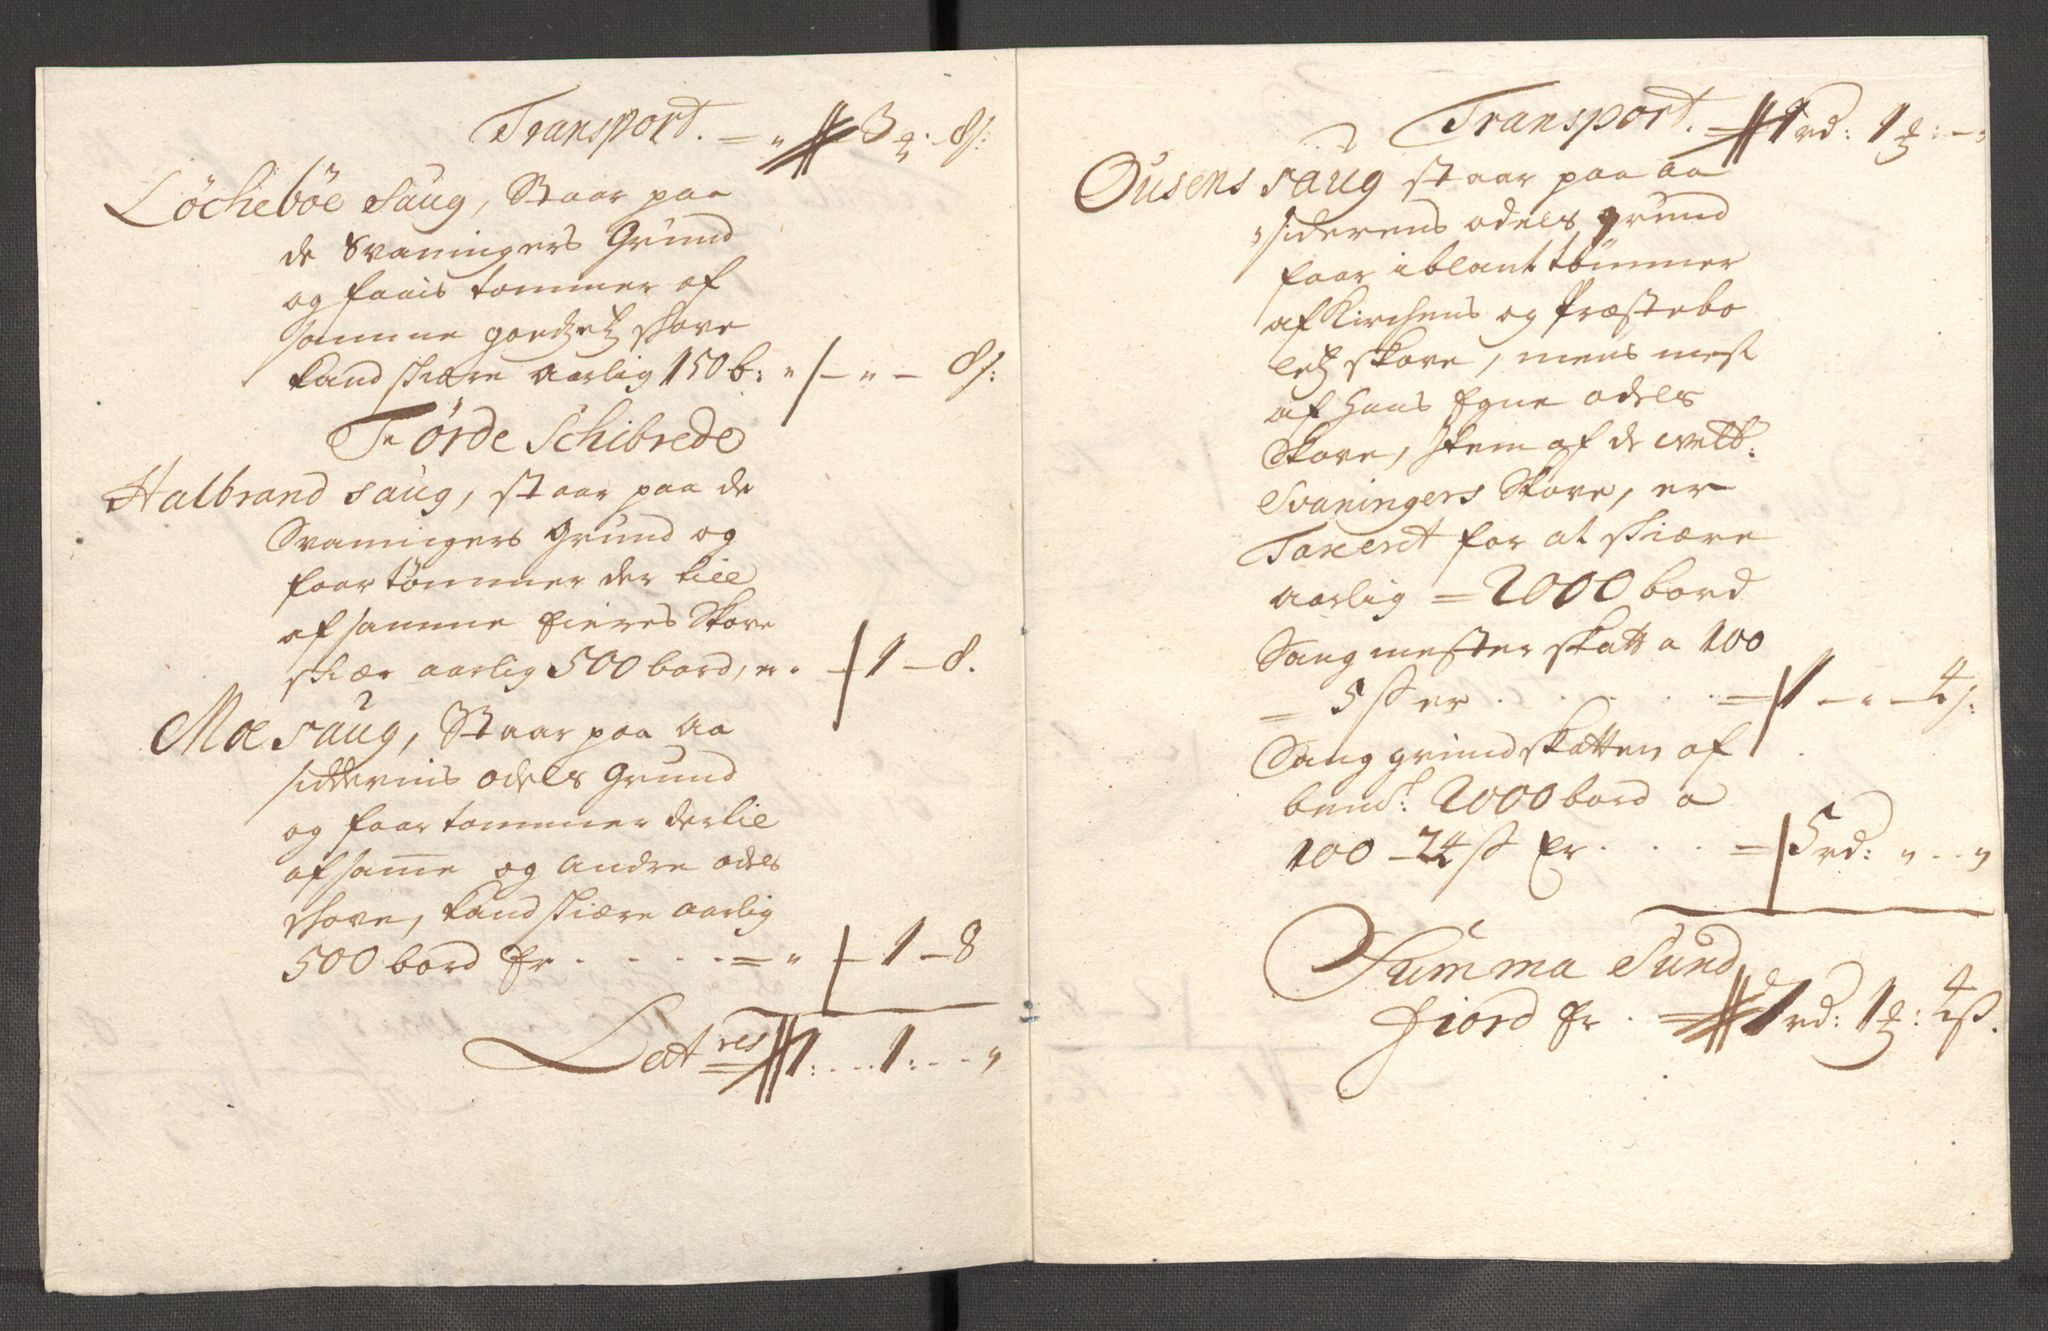 Transport. — „ 3 — 8 s:
Löcheböe Saug, Staar paa
de Svaningers Grund
og faais tømmer af
samme goedzetz schove
kand skiære aarlig 150 b: „ — „ — 8 s:
Förde Schibrede
Halbrand saug, staar paa de
Svaningers Grund og
faar tömmer der till
af samme Eieres Skove
skiær aarlig 500 bord, er „ — 1 — 8.
Moe saug, Staar paa Aa
sidderens odels Grund
og faar tømmer dertil
af samme og andre odels
schove, kand skiære aarlig
500 bord Er . . . . = „ — 1 — 8
Lat res 1: . . . 1: - - „
Transport. 1 rd: 1 : - „
Ousens saug staar paa aa
siderens odels grund
faar iblant tömmer
af Kirchens og Præstebo
letz skove, mens mest
af Hans Egne odels
Skove, Item af de welb:
Svaningers Skove, er
Taxert for at skiære
aarlig = 2000 bord
Saugmester skatt a 100
= 5 s er . . . . . = 1 — „ — 4 s:
Saug grundskatten af
bemt: 2000 bord a
100 — 24 s Er . . . = 5 rd: „ - - „
Summa Sund
fiord Er . = 1 rd: 1 : 4 s.